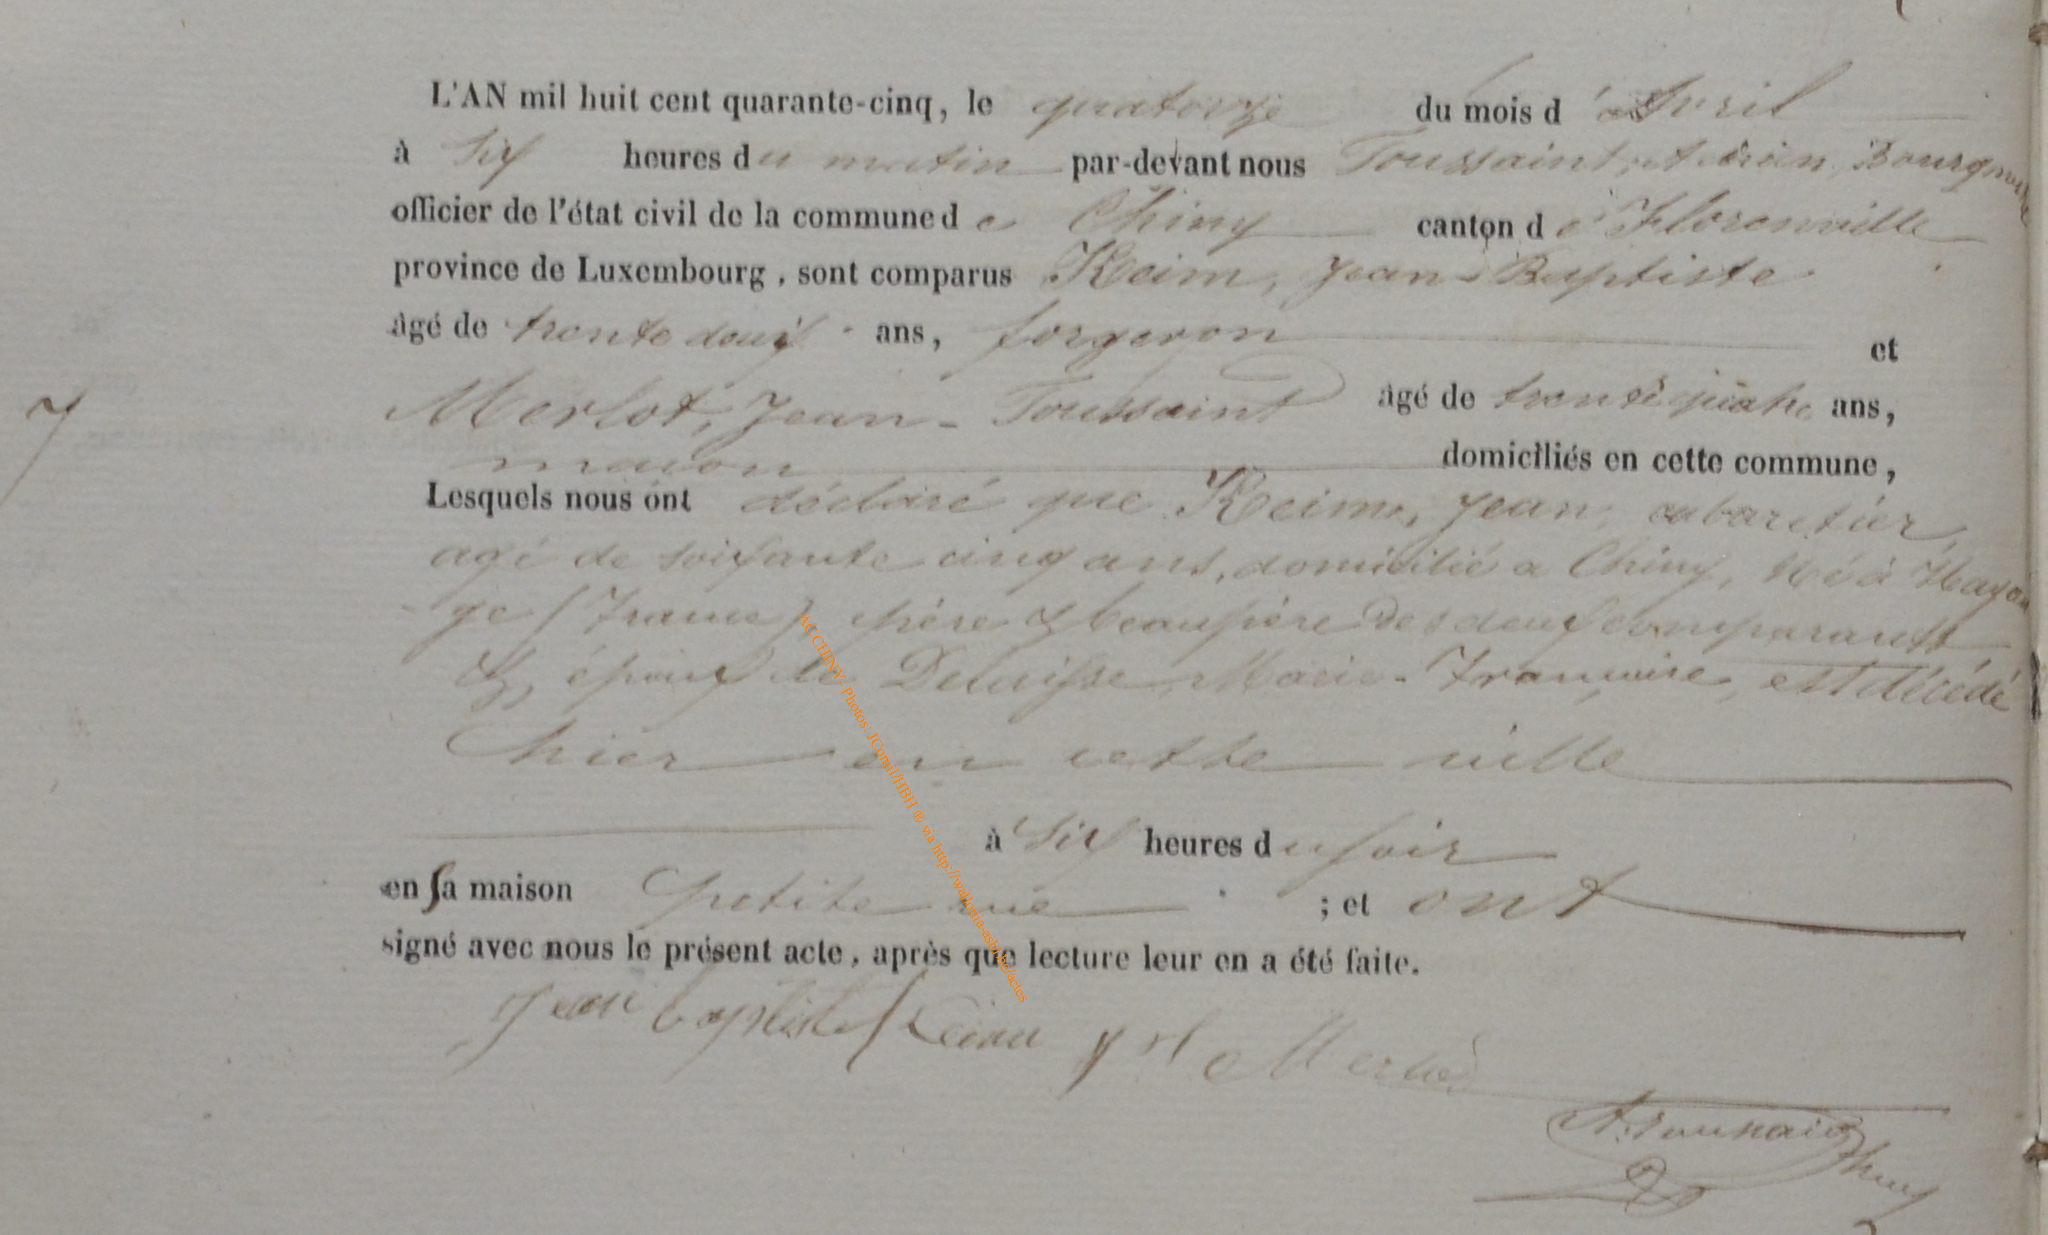 L'AN mil huit cent quarante-cinq, le quatorze du mois d'Avril
à Six heures du matin par-devant nous Toussaint, Adrien, Bourgmestre
officier de l'état civil de la commune de Chiny canton de Florenville
province de Luxembourg, sont comparus Keim, Jean-Baptiste
âgé de trente deux ans, forgeron et
Merlot, Jean-Toussaint âgé de trente quatre ans,
maçon domiciliés en cette commune,
7
Lesquels nous ont déclaré que Keim, Jean, cabaretier,
agé de soixante cinq ans, domicilié a Chiny, Né à Hayan
ge (France) père & beaupère des deux comparants
& époux de Marie-Françoise, est décédé
hier en cette ville
à Six heures du soir
en sa maison petite rue ; et ont
signé avec nous le présent acte, après que lecture leur en a été faite.
Jean baptiste Keim Merlot
A. Toussaint
AC CHINY - Photos